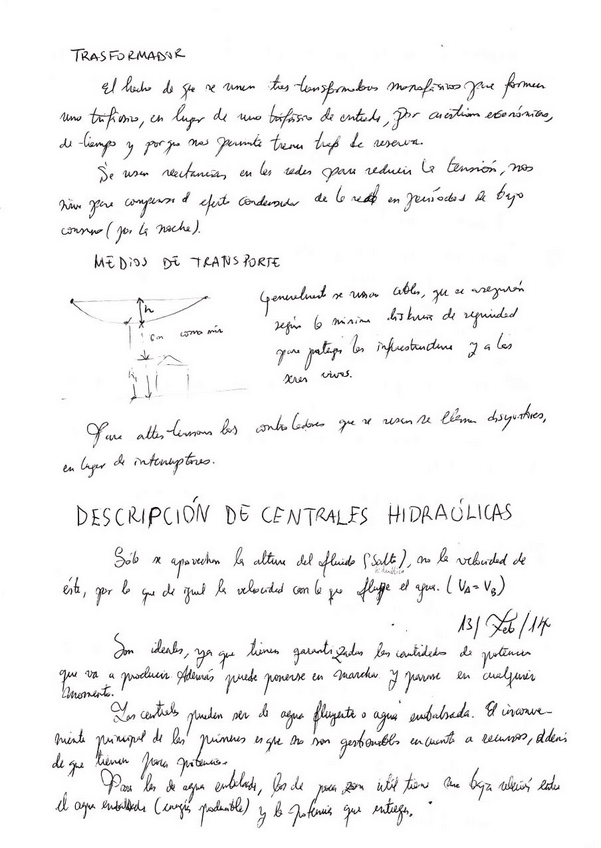 TRASFORMADOR
El hecho de que se unen tres transformadores monofásicos para formar
uno trifásico, en lugar de uno trifásico de entrada, por cuestiones económicas,
de tiempo y porque nos permite tener trafo de reserva.
Se usan reactancias en las redes para reducir la tensión, nos
sirve para compensar el efecto condensador de la red en períodos de bajo
consumo (por la noche).
MEDIOS DE TRANSPORTE
h
6m como mín
Generalmente se usan cables, que se aseguran
según la mínima distancia de seguridad
para proteger las infraestructuras y a los
seres vivos.
Para altas tensiones los controladores que se usan se llaman disyuntores,
en lugar de interruptores.
DESCRIPCIÓN DE CENTRALES HIDRAÚLICAS
Sólo se aprovechan la altura del fluido (Salto), no la velocidad de
ésta, por lo que da igual la velocidad con la que fluye el agua. (VA = VB)
13/Feb/14
Son ideales, ya que tienen garantizadas las cantidades de potencia
que va a producir. Además puede ponerse en marcha y pararse en cualquier
momento.
Las centrales pueden ser de agua fluyente o agua embalsada. El inconve-
niente principal de las primeras es que no son gestionables en cuanto a recursos, además
de que tienen poca potencia.
Para las de agua embalsada, las de poca zona útil tiene una baja relación entre
el agua embalsada (energía) y la potencia que entrega.